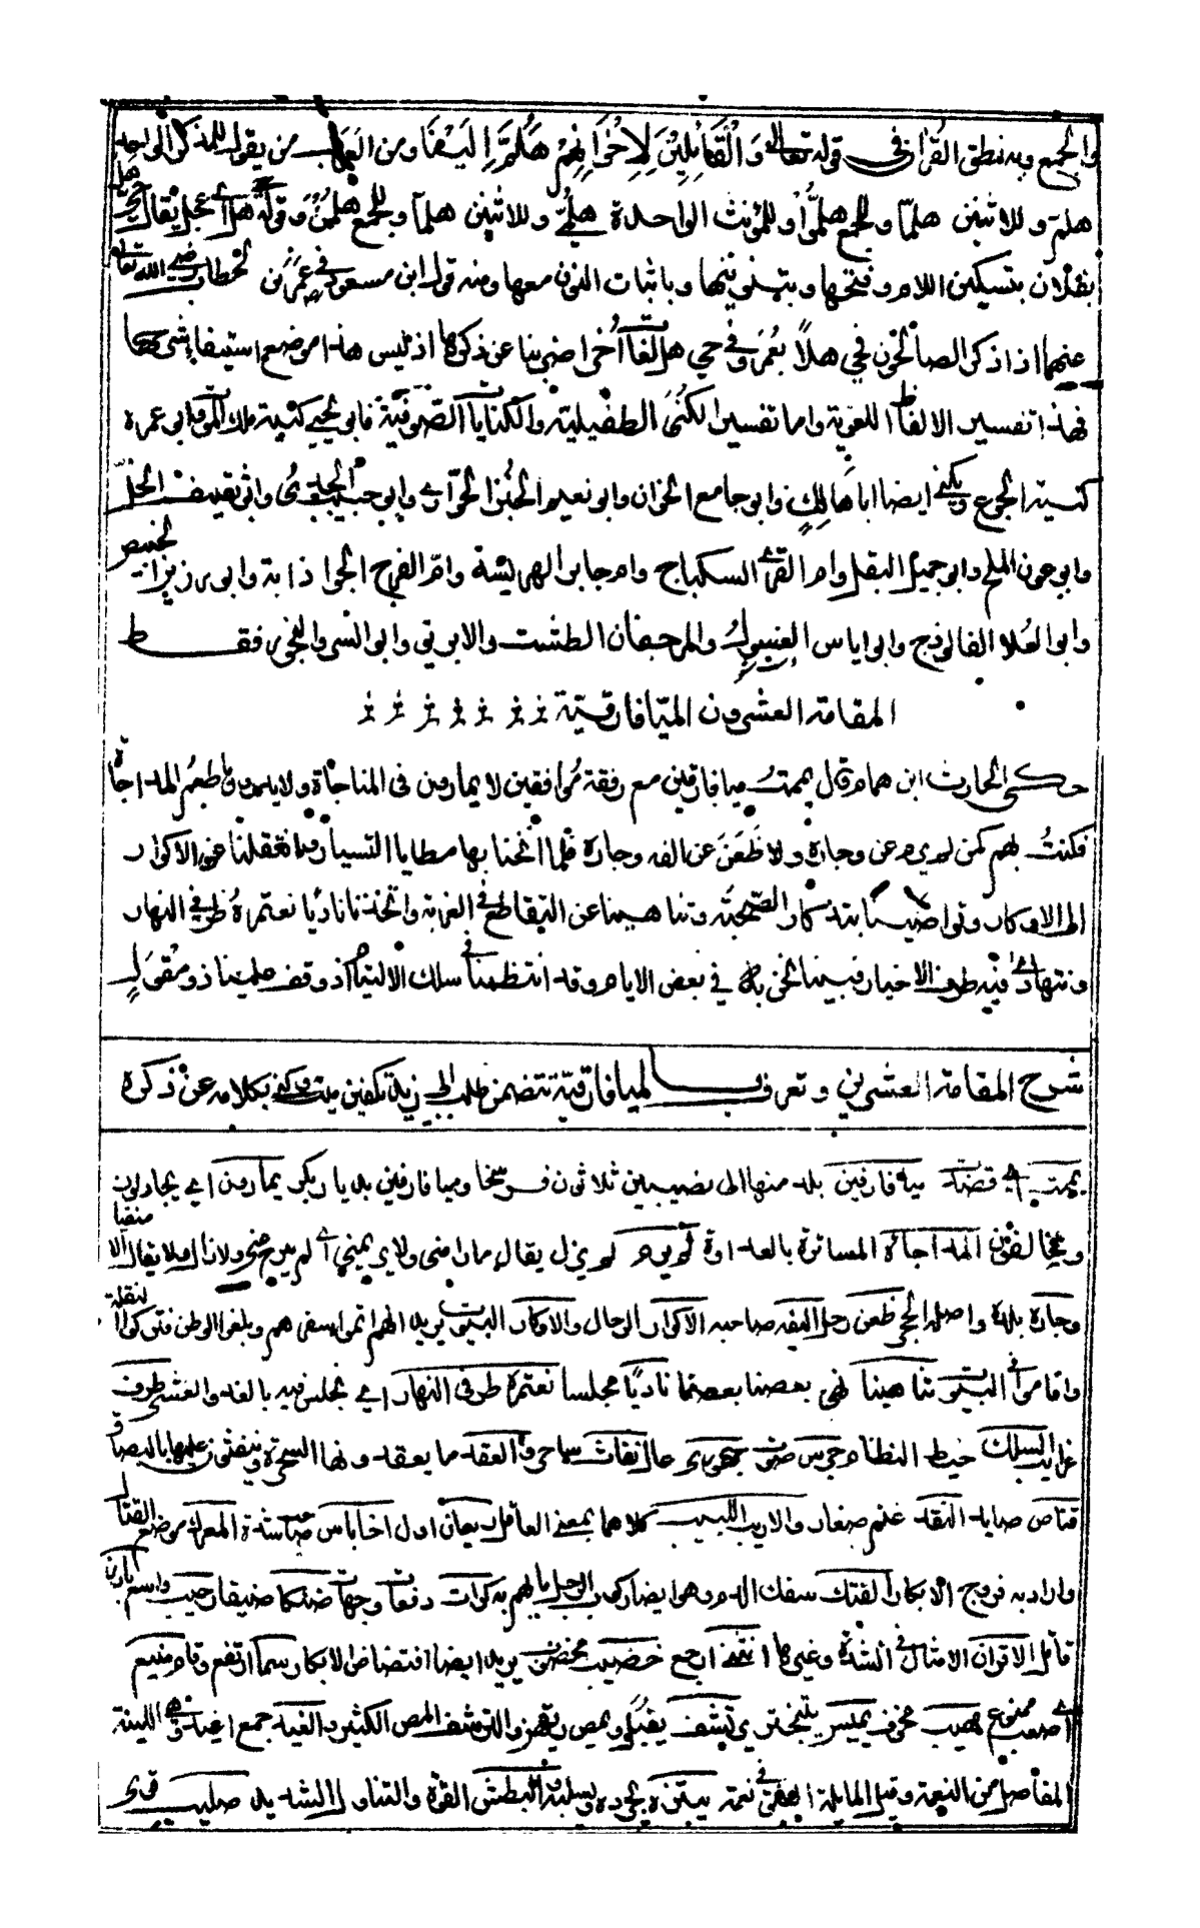 والجمع وبه نطق القرآن في قوله تعالى وَالْقَائِلِينَ لِإِخْوَانِهِمْ هَلُمَّ إِلَيْنَا ومن العرب من يقول للمذكر الواحد
هلم وللاثنين هلمّا وللجمع هلمُّوا وللمؤنث الواحدة هلُمّي وللاثنين هلمّا وللجمع هلمُمْنَ وقوله هلا أي عجل يقال حي هل
بفلان بتسكين اللام وفتحها وبتنوينها وباثبات النون معها ومنه قول ابن مسعود في عمر بن الخطاب رضي الله تعالى
عنهما اذا ذكر الصالحون فحي هلاً بعُمَر وفي حي هل لغات أُخر اضربنا عن ذكرها اذ ليس هذا موضع استيفاء شرحها
فهذا تفسير الالفاظ اللغوية واما تفسير الكُنَى الطفيلية والكنايات الصّوفيّة فابو يحيى كنية ملك الموت وابو عمرة
كنية الجوع ويكنى ايضا ابا مالك وابو جامع الخوان وابو نعيم الخُبز الحوّارى وابو حبيب الجدي وابو ثقيف الخلّ
وابو عون الملح وابو جميل البقل وام القرى السكباج وام جابر الهريسة وامّ الفرج الجواذابة وابو رزين الخبيص
وابو العُلا الفالوذج وابو اياس الغسول والمرجفان الطشت والابريق وابو السرو البخور فقط
المقامة العشرون الميّافارقيّة
حكى الحارث ابن همام قال يممتُ ميافارقين مع رفقة مُوافقين لا يمارون في المناجاة ولا يدرون ما طعمُ المداجاة
فكنتُ بهم كمن لم يرم عن وجاره ولا ظَعَنَ عن الفه وجاره فلما انخنا بها مطايا التسيار وانتقلنا عن الاكوار
الى الاوكار تواصَينا بتذكار الصّحبة وتناهينا عن التقاطع في الغربة واتخذنا ناديًا نعتمرهُ طرفي النهار
ونتهادى فيه طرف الاخبار فبينا نحن به في بعض الايام وقد انتظمنا في سلك الالتيام اذ وقف علينا ذو مِقوَلٍ
شرح المقامة العشرين وتعرف بالميافارقيّة تتضمن طلب ابي زيد تكفين ميت يكنى بكلامه عن ذكره
يممت اي قصدت ميافارقين بلد منها الى نصيبين ثلاثون فرسخا وميافارقين بديار بكر يمارون اي يجادلون
ويخالفون المداجاة المساترة بالعداوة لم يرم لم يزل يقال ما رامني ولا يريمني اي لم يبرحني ولا زال ملا يقال الا منفيا
وجاره بلده واصله الجحر ظعن رحل اليفه صاحبه الاكوار الرحال والاوكار البيوت يريد انهم اتموا سفرهم وبلغوا الوطن فتركوا النقلة
واقاموا في البيوت تناهينا نهى بعضنا بعضا ناديًا مجلسا نعتمره طرفي النهار اي نجلس فيه بالغداة والعشي طرف
غرايب السلك خيط النظام جرس صوت جهوري عال نفاث ساحر والعقد ما يعقدونها السحرة وينفثون عليها بالبصاق
قناص صايد النقد غنم صغار والاريب اللبيب كلاهما بمعنى العاقل ريعان اول اخا باس صاحب شدة المعرك موضع القتال
واراد به فروج الابكار الفتك سفك الدم وهو ايضا ركوب الرجل ما يهم به كرات دفعات وجهات ضنكا ضيقا رحيب واسع بارز
قاتل الاقران الامثال في الشدة وغيرها انثنى ارجع خضيب مخضوب يريد ايضا افتضاض الابكار سما ارتفع وقام منيع
اي ممنوع صعب مهيب مخوف يميس يتبختر يرتشف يقبل ويمص ريقهن والترشف المص الكثير والغيد جمع اغيد وهي اللينة
المفاصل من النعمة وقيل المايلة العنق في نعمة يبتزه يجرده ويسلبه البطش القوة والتناول الشديد صليب قوي